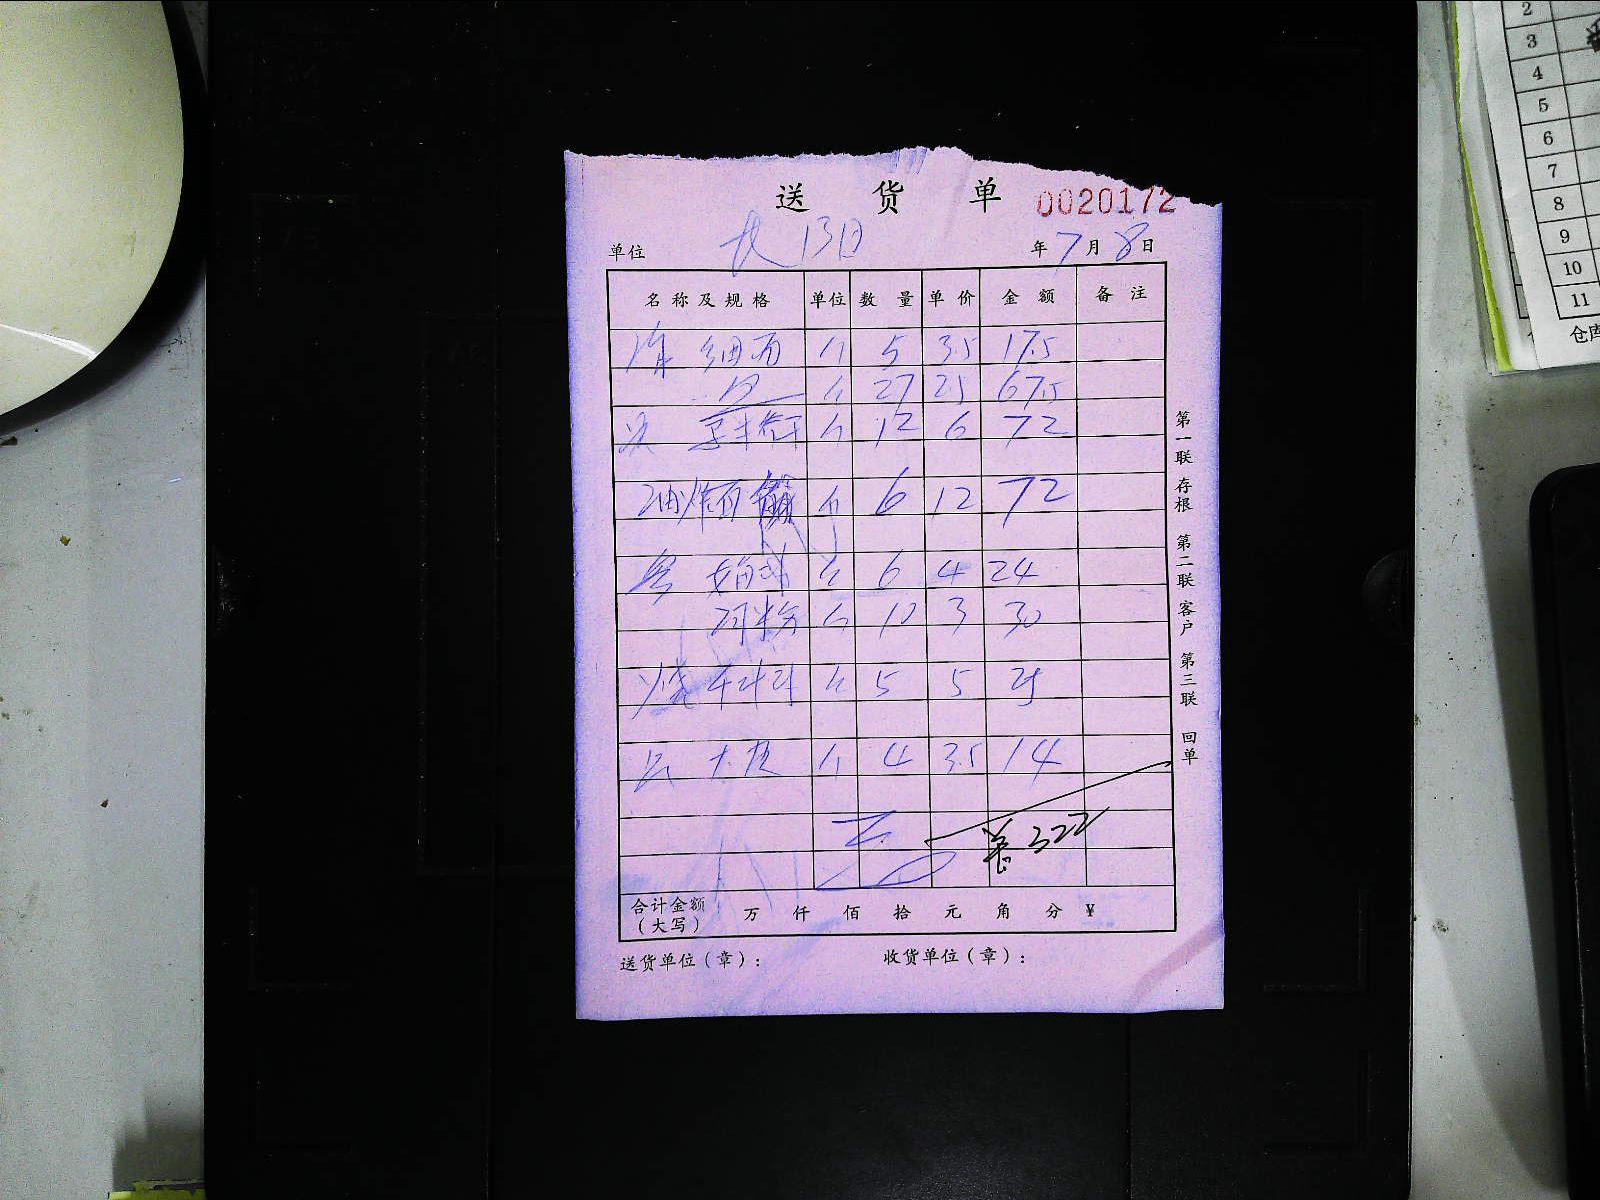 送 货 单 0020172
单位 13日 年7月8日
名称及规格 单位 数量 单价 金额 备注
细面 个 5 3.5 17.5
个 27 2.5 67.5
个 12 6 72
油炸面筋 个 6 12 72
个 6 4 24
河粉 个 10 3 30
烧 个 5 5 25
个 4 3.5 14
322
合计金额（大写） 万 仟 佰 拾 元 角 分 ¥
送货单位（章）： 收货单位（章）：
第一联 存根 第二联 客户 第三联 回单
2
3
4
5
6
7
8
9
10
11
仓库